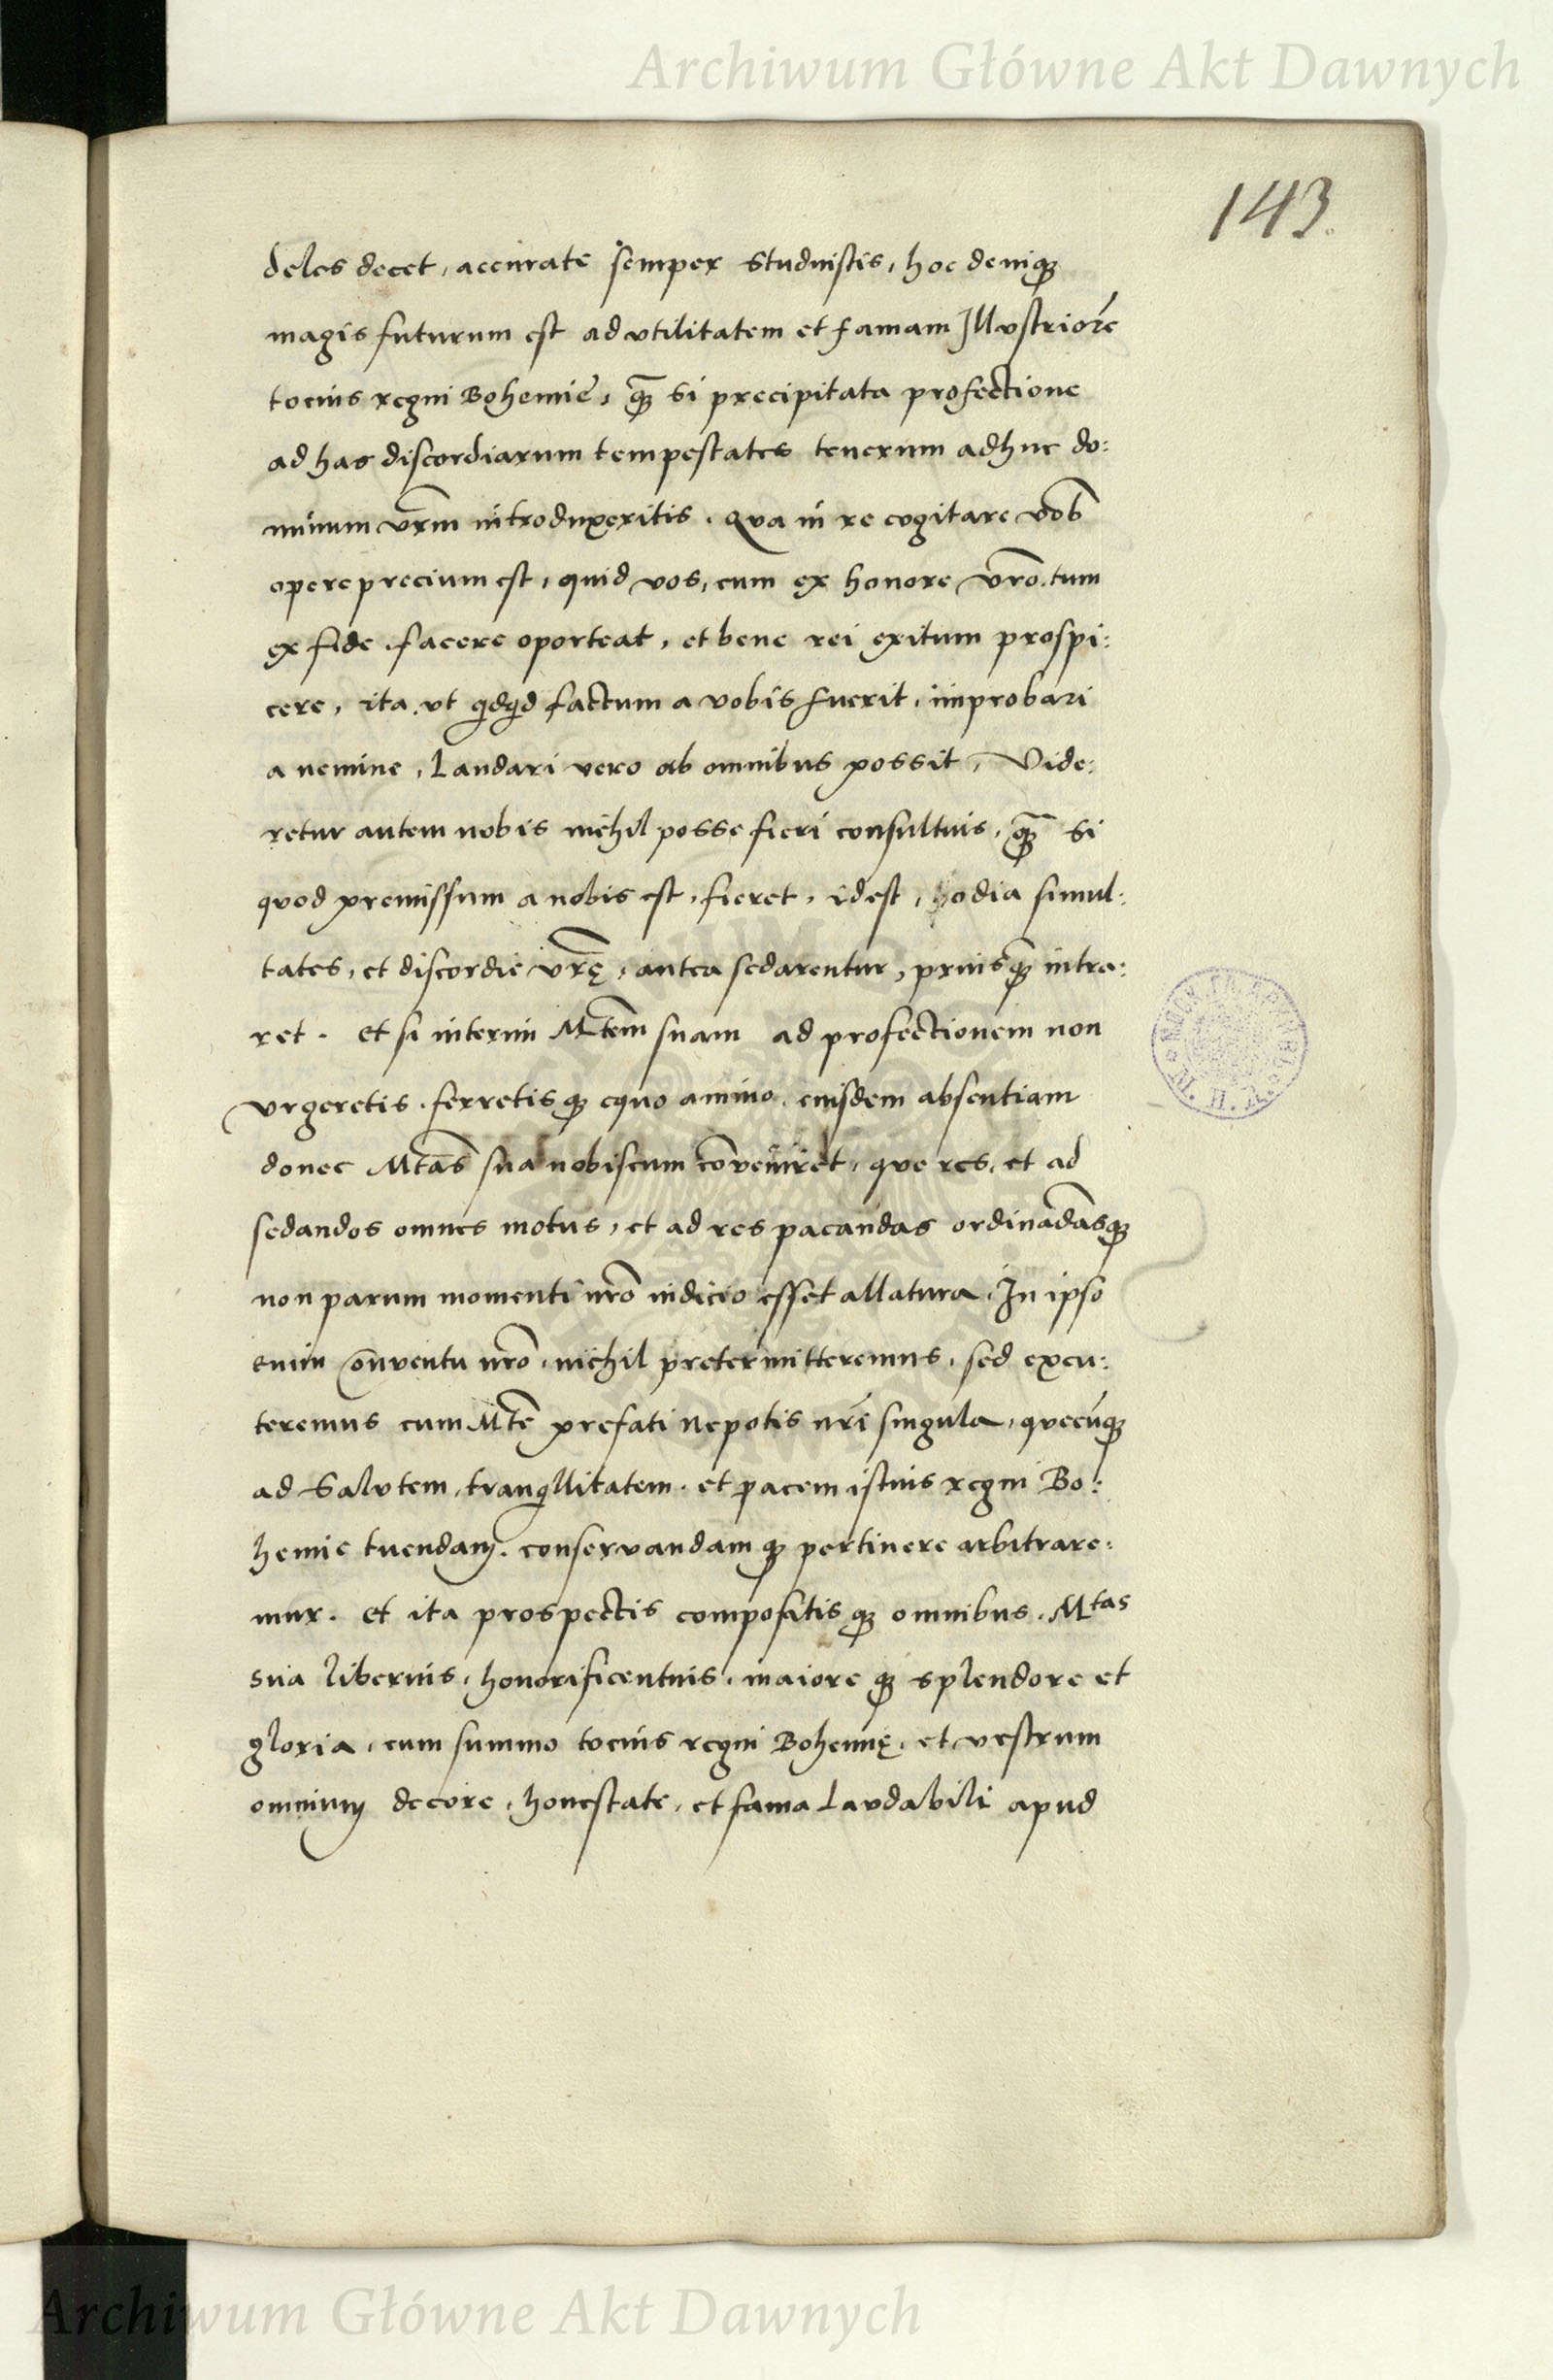 Archiwum Główne Akt Dawnych
143.
deles decet, accurate semper studuistis, hoc deniqꝫ
magis futurum est ad vtilitatem et famam Illustriorē
tocius regni Bohemie, qꝫ̄ si precipitata profectione
ad has discordiarum tempestates tenerum adhuc do:
minum vr̄m introduxeritis. Qua in re cogitare vob̄
opereprecium est, quid vos, cum ex honore vr̄o. tum
ex fide. facere oporteat, et bene rei exitum prospi:
cere, ita vt qd̓qd̓ factum a vobis fuerit, improbari
a nemine, Laudari vero ab omnibus possit, Vide:
retur autem nobis nichil posse fieri consultius, qꝫ̄ si
quod premissum a nobis est, fieret, id est, odia simul:
tates, et discordie vr̄ę, antea sedarentur, priusqꝫ̄ intra:
ret. et si interim Mtēm suam ad profectionem non
vrgeretis. ferretisqꝫ equo animo, eiusdem absentiam
donec Mtās sua nobiscum cōveniret, que res, et ad
sedandos omnes motus, et ad res pacandas ordinādasqꝫ
non parum momenti nr̄o iudicio esset allatura, In ipso
enim cōnventu nr̄o, nichil pretermitteremus, sed excu:
teremus cum Mtē prefati nepotis nr̄i singula, quecūqꝫ
ad Salutem, tranqllitatem. et pacem istius regni Bo:
hemie tuendam. conservandamqꝫ pertinere arbitrare:
mur. et ita prospectis compositisqꝫ omnibus. Mtas
sua liberius, honorificentius, maioreqꝫ splendore et
gloria, cum summo tocius regni Bohemię, et vestrum
omnium decore, honestate, et fama Laudabili apud
Archiwum Główne Akt Dawnych